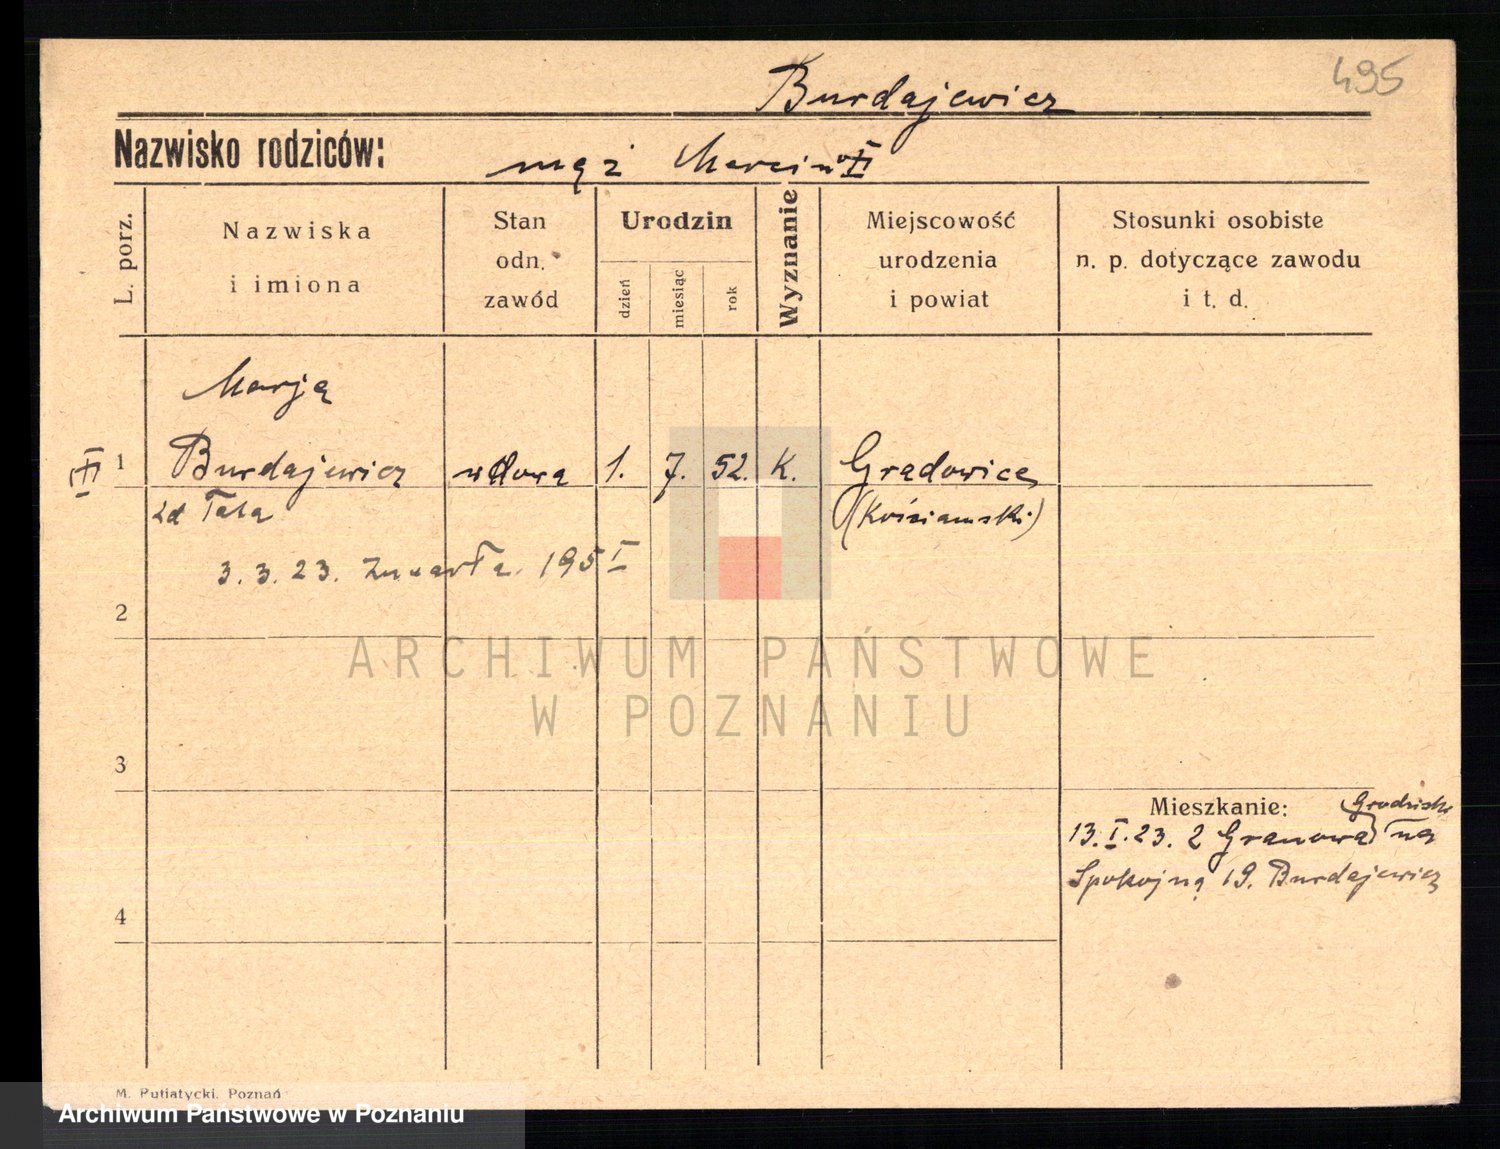 495
Burdajewicz
Nazwisko rodziców:
mąż Marcin
L. porz.
Nazwiska
i imiona
Stan
odn.
zawód
Urodzin
dzień
miesiąc
rok
Wyznanie
Miejscowość
urodzenia
i powiat
Stosunki osobiste
n. p. dotyczące zawodu
i t. d.
Marja
1 Burdajewicz wdowa 1. 7. 52. K. Gradowice
(Kościański)
3. 3. 23. zmarła 195 I
2
ARCHIWUM PAŃSTWOWE
W POZNANIU
3
Mieszkanie: Grodzisk
13. I. 23. z Granowa na
Spokojną 19. Burdajewicz
4
M. Putiatycki. Poznań
Archiwum Państwowe w Poznaniu